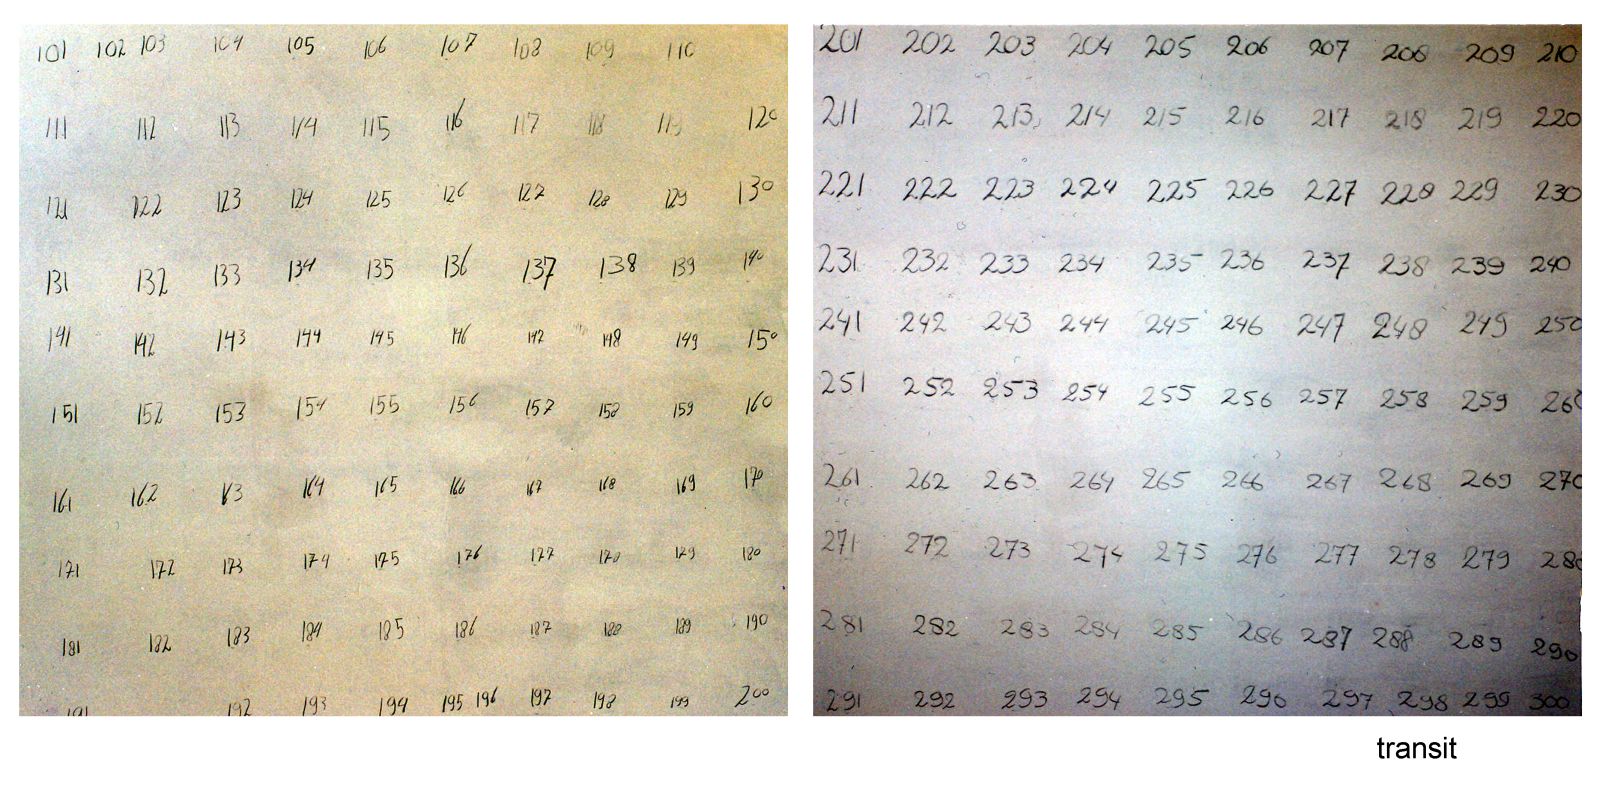 101 102 103 104 105 106 107 108 109 110
111 112 113 114 115 116 117 118 119 120
121 122 123 124 125 126 127 128 129 130
131 132 133 134 135 136 137 138 139 140
141 142 143 144 145 146 147 148 149 150
151 152 153 154 155 156 157 158 159 160
161 162 163 164 165 166 167 168 169 170
171 172 173 174 175 176 177 178 179 180
181 182 183 184 185 186 187 188 189 190
191 192 193 194 195 196 197 198 199 200
201 202 203 204 205 206 207 208 209 210
211 212 213 214 215 216 217 218 219 220
221 222 223 224 225 226 227 228 229 230
231 232 233 234 235 236 237 238 239 240
241 242 243 244 245 246 247 248 249 250
251 252 253 254 255 256 257 258 259 260
261 262 263 264 265 266 267 268 269 270
271 272 273 274 275 276 277 278 279 280
281 282 283 284 285 286 287 288 289 290
291 292 293 294 295 296 297 298 299 300
transit